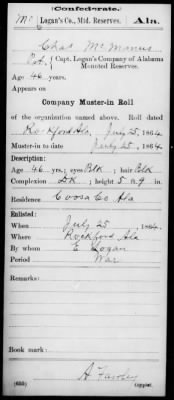 Confederate.
Mc Logan's Co., Mtd. Reserves. Ala.
Chas McManus
Pvt., Capt. Logan's Company of Alabama
Mounted Reserves.
Age 46 years.
Appears on
Company Muster-in Roll
of the organization named above. Roll dated
Rockford Ala, July 25, 1864.
Muster-in to date July 25, 1864.
Description:
Age 46 yrs.; eyes Blk; hair Blk
Complexion Dk; height 5 ft. 9 in.
Residence Coosa Co Ala
Enlisted:
When July 25, 1864.
Where Rockford Ala
By whom E Logan
Period War
Remarks:
Book mark:
(635) Copyist.